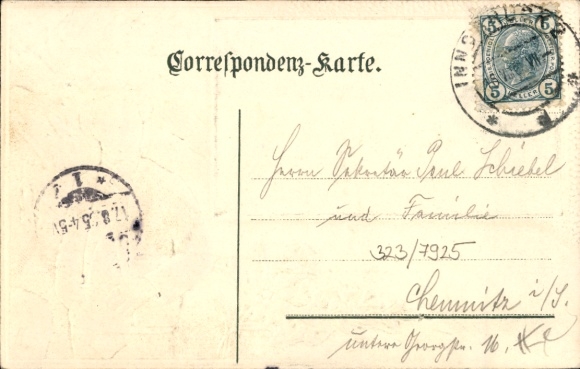 Correspondenz-Karte.
INNSBRUCK 2
5 5
5 5
Herrn Sekretär Paul Schiebel
und Familie
323/7925
Chemnitz i/S.
untere Georgstr. 16.
17.8.05.4-5